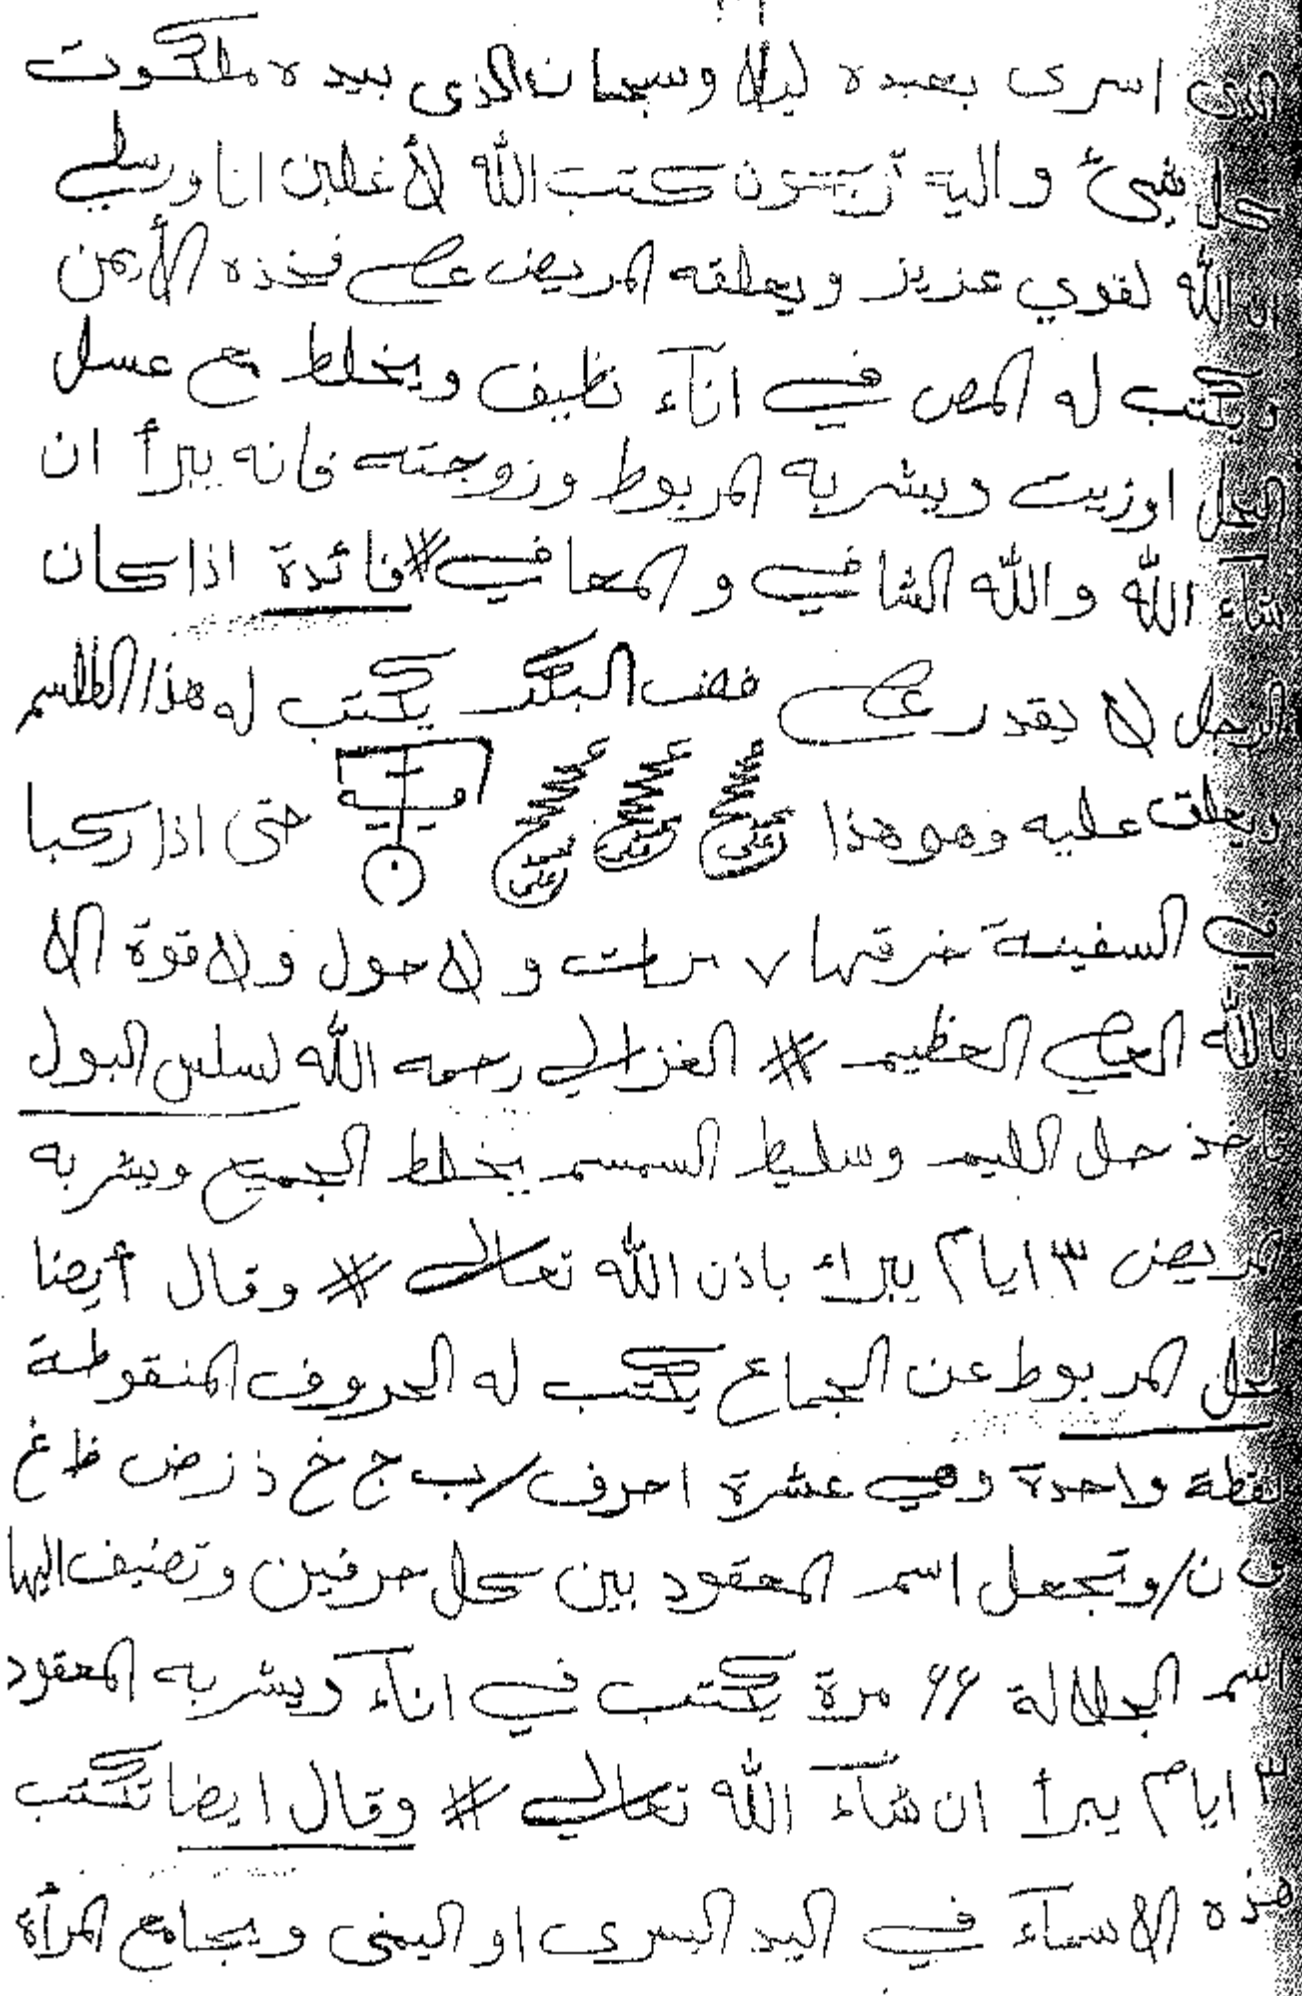 الذى اسرى بعبده ليلا وسبحان الذى بيده ملكوت
كل شىئ واليه ترجعون كتب الله لأغلبن انا ورسلي
ان الله لقوي عزيز ويعلقه المريض على فخذه الأيمن
ويكتب له المص في اناء نظيف ويخلط مع عسل
النحل اوزيت ويشربه المربوط وزوجته فانه يبرأ ان
شاء الله والله الشافي والمعافي # فائدة اذا كان
الرجل لا يقدر على فض البكر يكتب له هذا الطلسم
ويعلق عليه وهو هذا حتى اذا ركبا
في السفينة خرقها ٧ مرات ولا حول ولا قوة الا
بالله العلي العظيم # الغزالي رحمه الله لسلس البول
ياخذ خل الليم وسليط السمسم يخلط الجميع ويشربه
المريض ٣ ايام يبراء باذن الله تعالى # وقال أيضا
لحل المربوط عن الجماع يكتب له الحروف المنقوطة
نقطة واحدة وهي عشرة احرف / ب ج خ ذ ز ض ظ غ
ف ن / وتجعل اسم المعقود بين كل حرفين وتضيف اليها
اسم الجلالة ٦٦ مرة يكتب في اناء ويشربه المعقود
٣ ايام يبرأ ان شاء الله تعالى # وقال ايضا تكتب
هذه الاسماء في اليد اليسرى او اليمنى ويجامع المرأة